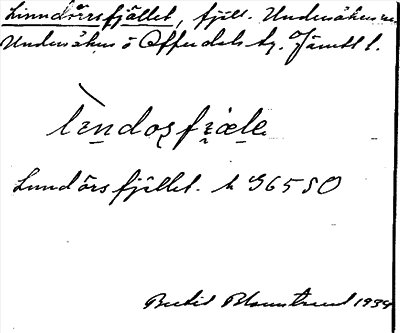 Linndörrsfjället, fjäll. Undersåkers sn
Undersåkers o Offerdals tg. Jämtl l.
l̀ɪndosfɪæle
Lundörsfjället. h 365 SO
Bertil Blomstrand 1934